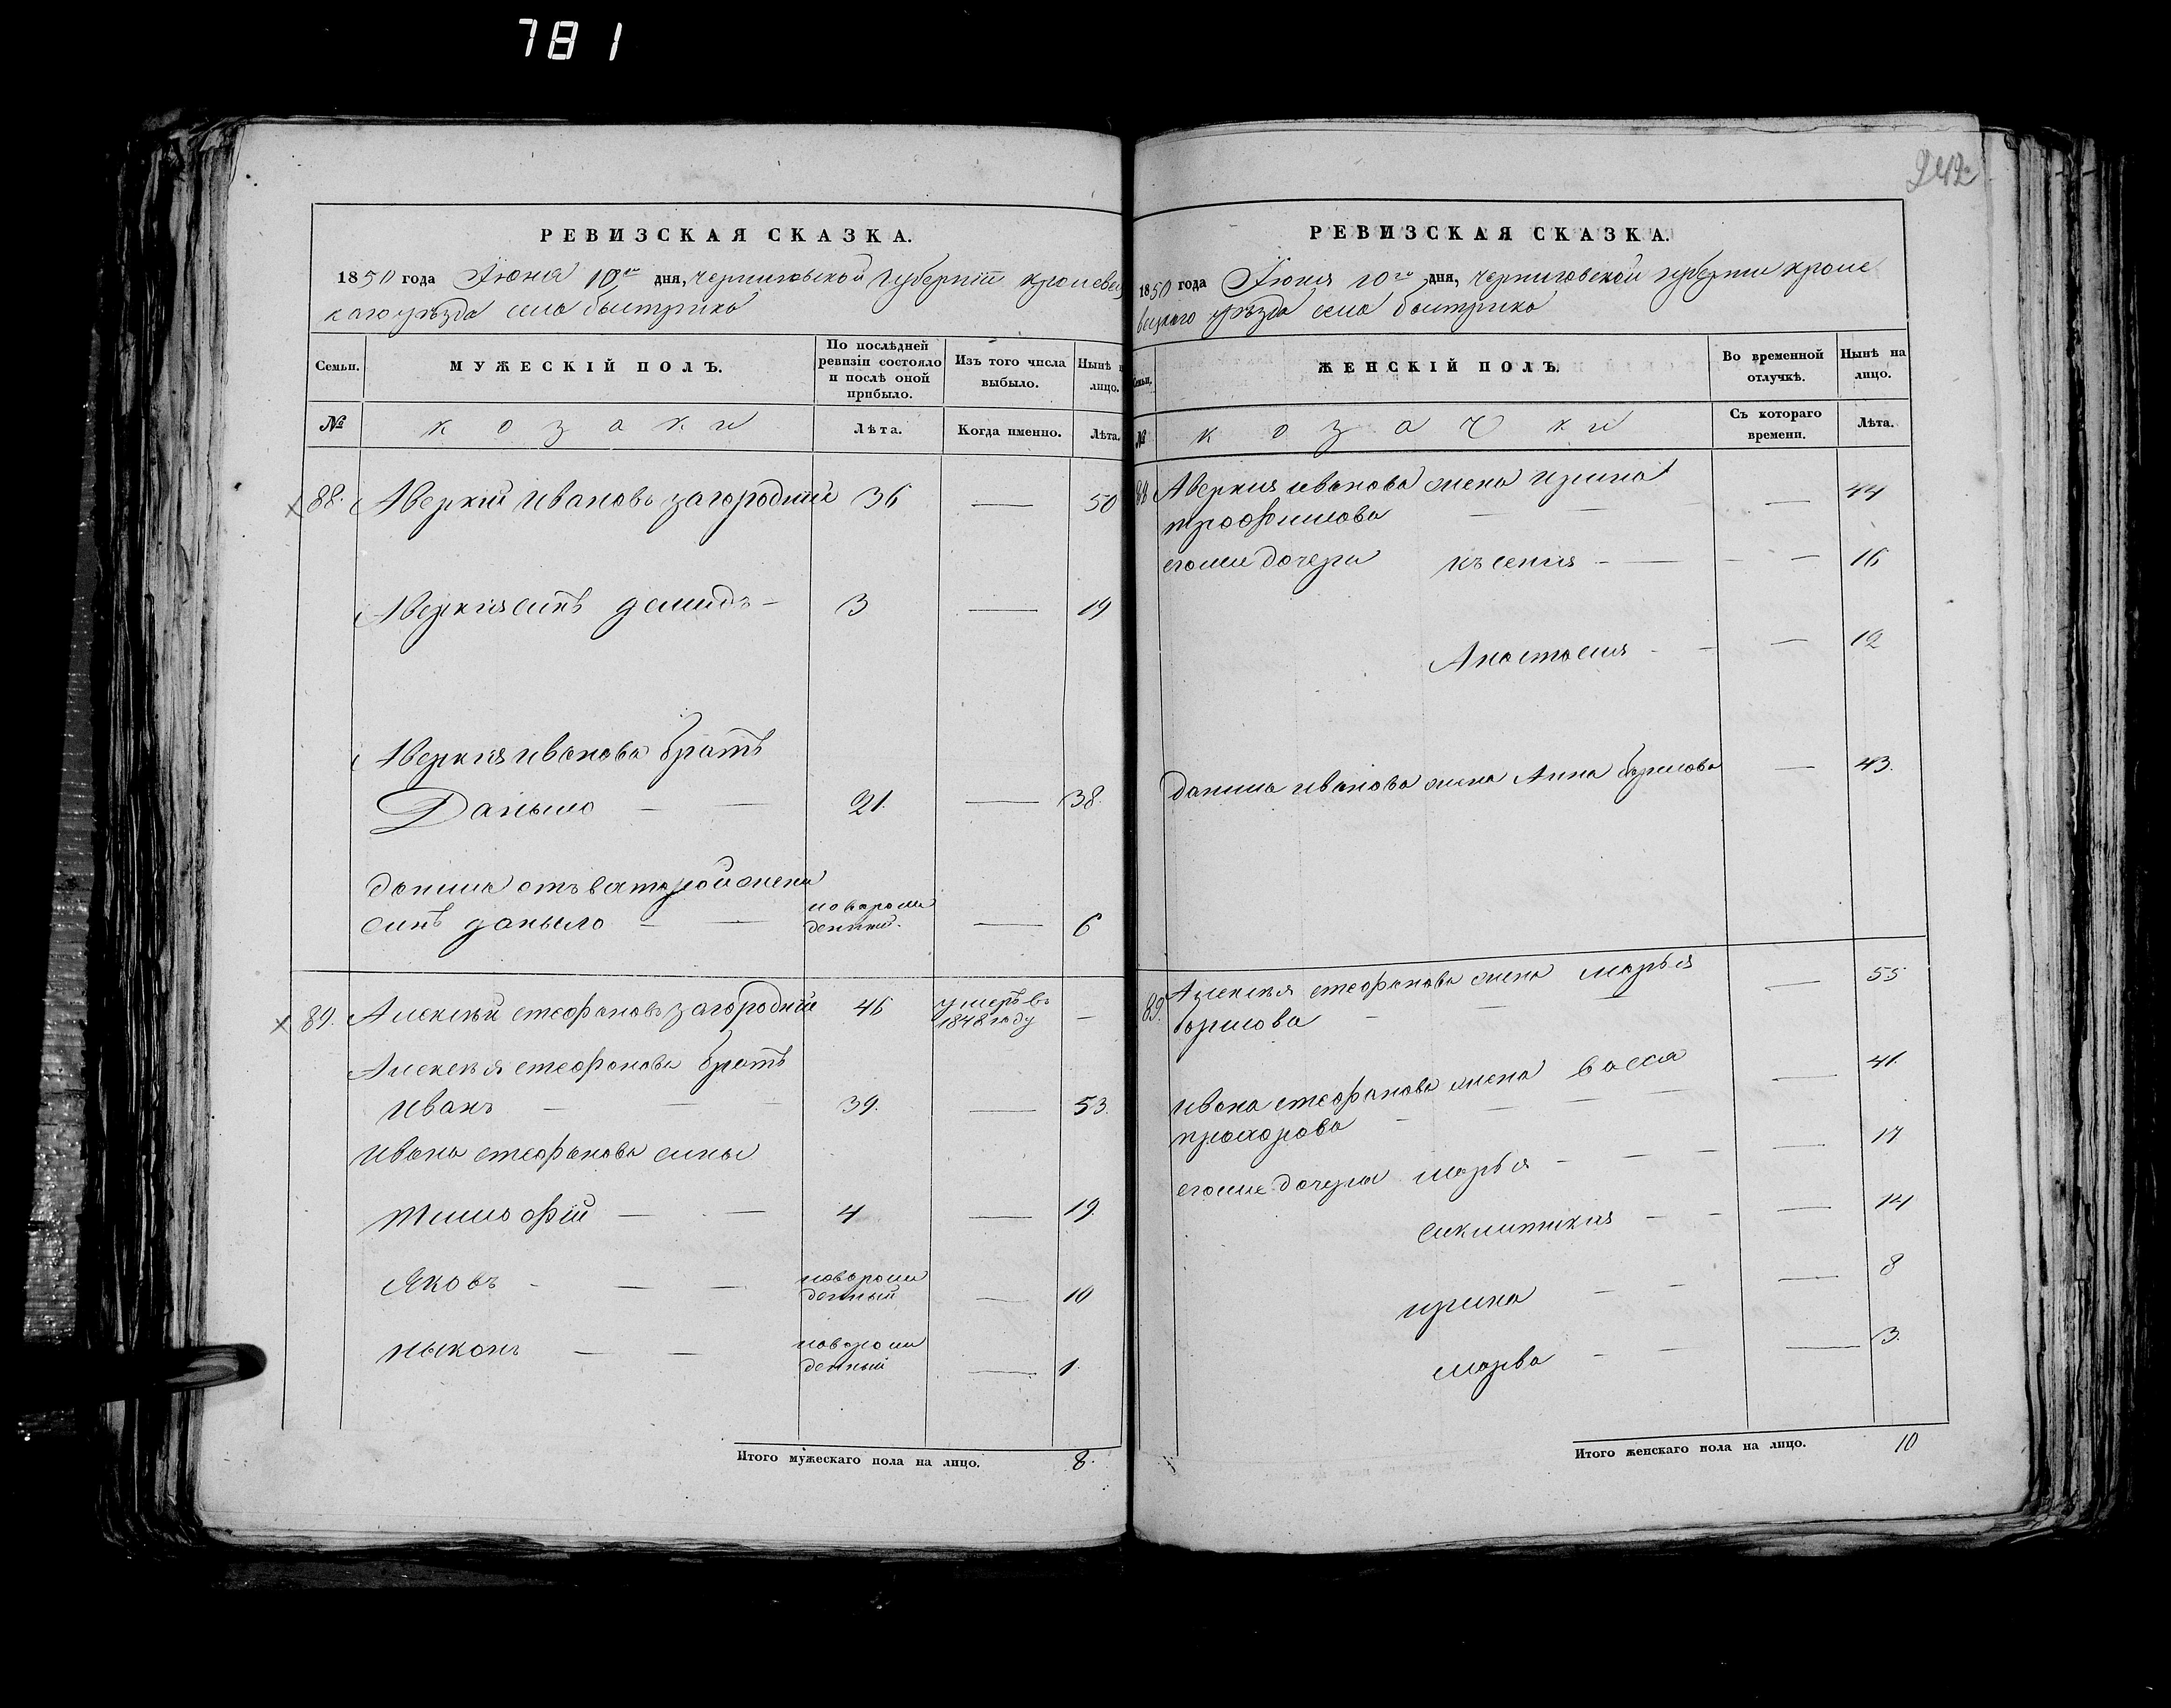 781
242
РЕВИЗСКАЯ СКАЗКА.
1850 года Июня 10го дня, черниговской губерніи кролевец
каго уѣзда села быстрика
Семьи.
МУЖЕСКІЙ ПОЛЪ.
По послѣдней
ревизіи состояло
и послѣ оной
прибыло.
Изъ того числа
выбыло.
Нынѣ н
лицо.
№
козаки
Лѣта.
Когда именно.
Лѣта.
88. Аверкий Ивановъ загородний 36 — 50
Аверкия синъ демидъ — 3 — 19
Аверкия иванова братъ
Даныло — — 21. — 38.
данила отъ ваторой жены
синъ даныло — — поварож
денний. — 6
89. Алексѣй стефановъ загородний 46 умеръ въ
1848 году —
Алексѣя стефанова братъ
иванъ — — — 39. — 53.
Ивана стефанова сины
тимофій — — 4 — 19.
Яковъ — — — новорож
денный — 10
ныконъ — — новорож
денный — 1.
Итого мужескаго пола на лицо. 8.
РЕВИЗСКАЯ СКАЗКА.
1850 года Июня 10го дня, черниговской губернии кроле
вецкаго уѣзда села быстрика
Семьи.
ЖЕНСКІЙ ПОЛЪ.
Во временной
отлучкѣ.
Нынѣ на
лицо.
№
козачки
Съ котораго
времени.
Лѣта.
88 Аверкия иванова жена ирина
трофимова — — — 44
егоже дочери късения — — — — 16
Анастасия — — — 12
данила иванова жена Анна борисова — 43.
89. Алексѣя стефанова жена марья
борисова — — — — 55
Ивана стефанова жена васса
прохорова — — — — — 41.
егоже дочери марья — — — — 17
сиклитикия — — — 14
ирина — — — 8
марва — — — 3.
Итого женскаго пола на лицо. 10